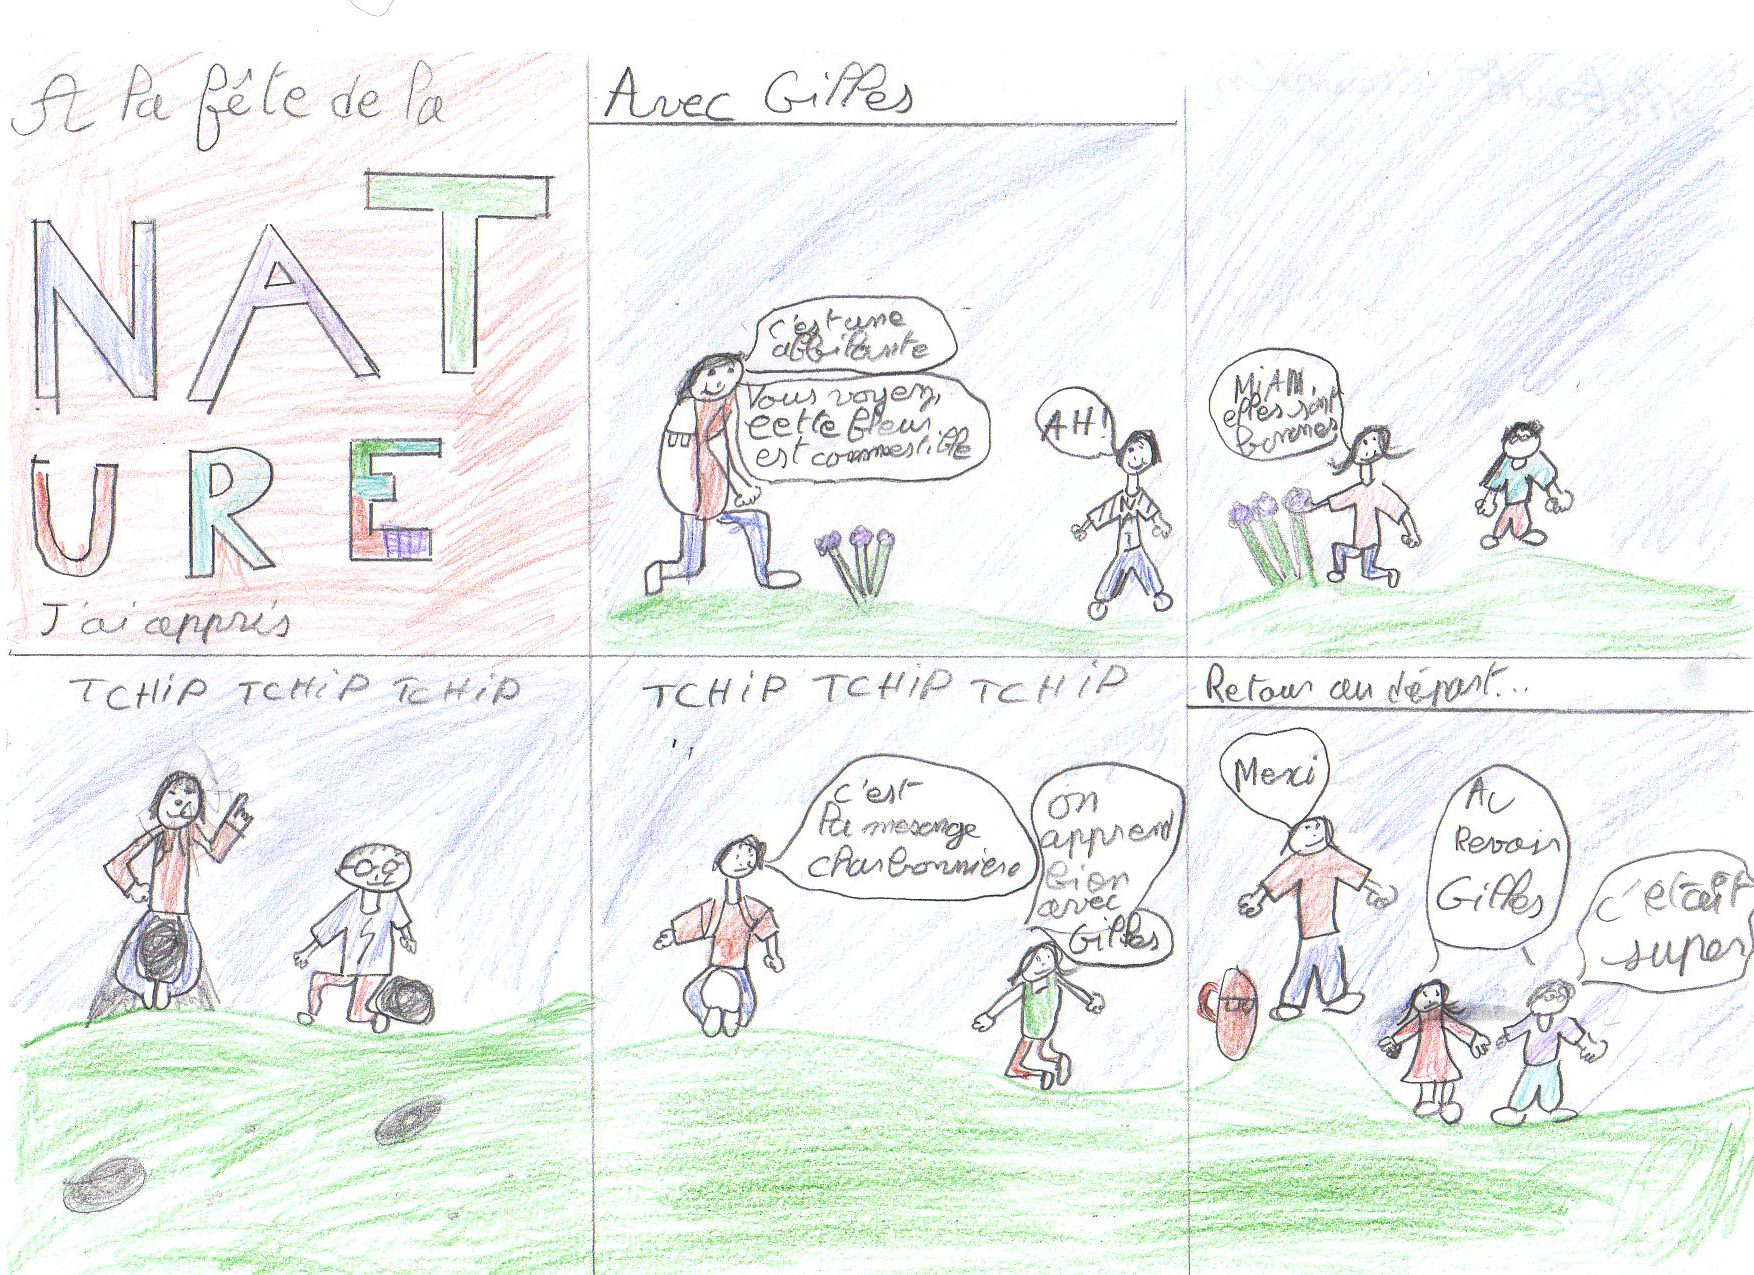 A la fête de la
NAT
URE
J'ai appris
Avec Gilles
c'est une
Vous voyez,
cette fleur
est commestible
AH!
MiAM,
elles sont
bonnes
TCHiP TCHiP TCHiP
TCHiP TCHiP TCHiP
c'est
la mesange
charbonniere
on
apprend
bien
avec
Gilles
Retour au départ...
Merci
Au
Revoir
Gilles
c'était
super